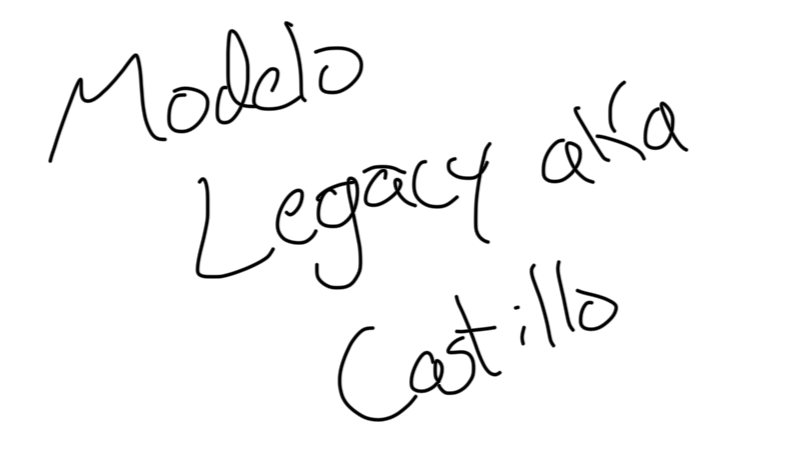 Modelo
Legacy aka
Castillo